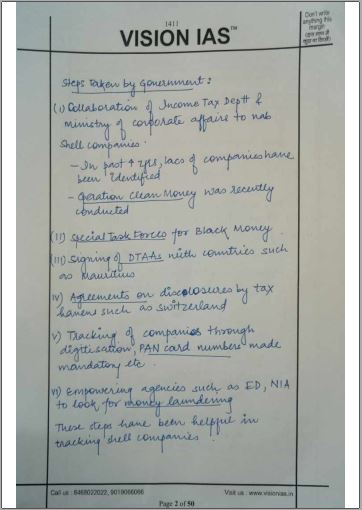 1411
VISION IAS™
Don't write
anything this
margin
Steps Taken by Government :
(i) Collaboration of Income Tax Deptt &
ministry of corporate affairs to nab
shell companies.
– In past 4 yrs, lacs of companies have
been identified
– Operation Clean Money was recently
conducted
(II) Special Task Forces for Black Money.
(III) Signing of DTAAs with countries such
as Mauritius
iv) Agreements on disclosures by tax
havens such as Switzerland
v) Tracking of companies through
digitisation, PAN card numbers made
mandatory etc.
vi) Empowering agencies such as ED, NIA
to look for money laundering
These steps have been helpful in
tracking shell companies.
Call us : 8468022022, 9019066066
Visit us : www.visionias.in
Page 2 of 50